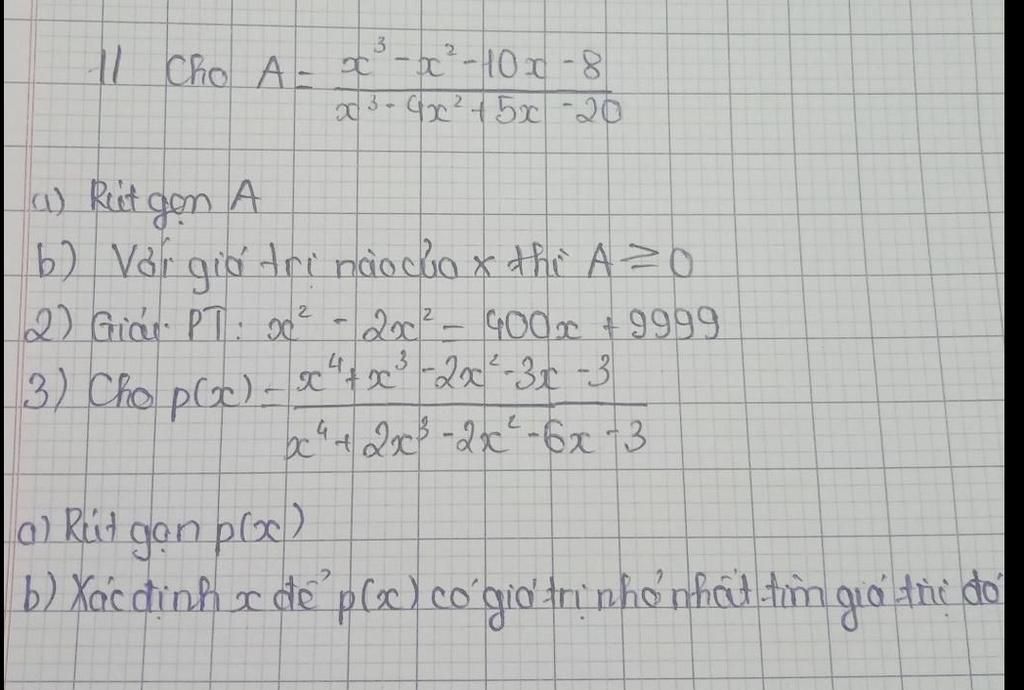 1) Cho A = x³ - x² - 10x - 8 / x³ - 4x² + 5x - 20
a) Rút gọn A
b) Với giá trị nào của x thì A ≥ 0
2) Giải PT: x² - 2x² = 400x + 9999
3) Cho p(x) = x⁴ + x³ - 2x² - 3x - 3 / x⁴ + 2x³ - 2x² - 6x - 3
a) Rút gọn p(x)
b) Xác định x để p(x) có giá trị nhỏ nhất tìm giá trị đó